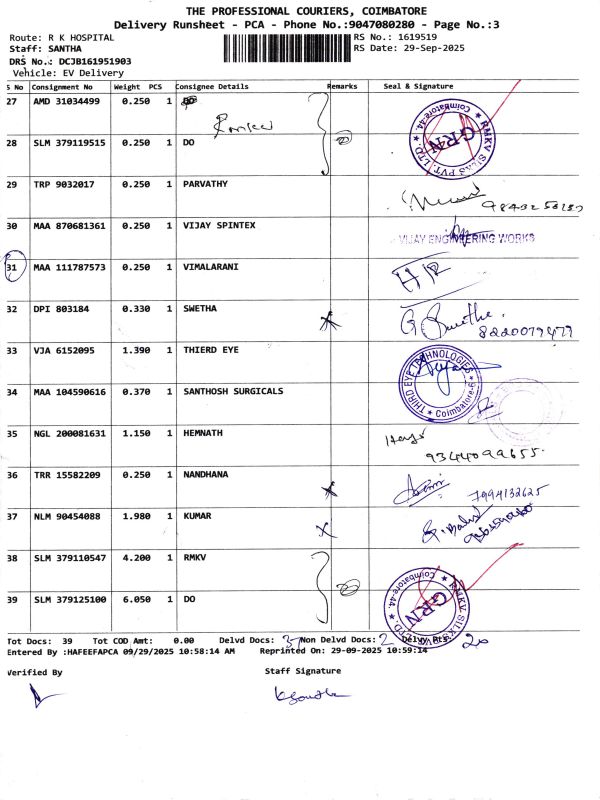 THE PROFESSIONAL COURIERS, COIMBATORE
Delivery Runsheet - PCA - Phone No.:9047080280 - Page No.:3
Route: R K HOSPITAL RS No.: 1619519
Staff: SANTHA RS Date: 29-Sep-2025
DRS No.: DCJB161951903
Vehicle: EV Delivery
S No Consignment No Weight PCS Consignee Details Remarks Seal & Signature
27 AMD 31034499 0.250 1 DO
28 SLM 379119515 0.250 1 DO
Coimbatore-44. RMKV SILKS PVT. LTD GRN
29 TRP 9032017 0.250 1 PARVATHY
30 MAA 870681361 0.250 1 VIJAY SPINTEX VIJAY ENGINEERING WORKS
31 MAA 111787573 0.250 1 VIMALARANI
32 DPI 803184 0.330 1 SWETHA G. Swetha.
8220079477
33 VJA 6152095 1.390 1 THIERD EYE
THIRD EYE TECHNOLOGIES Coimbatore-6
34 MAA 104590616 0.370 1 SANTHOSH SURGICALS
35 NGL 200081631 1.150 1 HEMNATH
9344099655.
36 TRR 15582209 0.250 1 NANDHANA 7994132625
37 NLM 90454088 1.980 1 KUMAR
38 SLM 379110547 4.200 1 RMKV
39 SLM 379125100 6.050 1 DO
Coimbatore-44. RMKV SILKS PVT. LTD. GRN
Tot Docs: 39 Tot COD Amt: 0.00 Delvd Docs: 37 Non Delvd Docs: 2 Delvy Pts: 20
Entered By :HAFEEFAPCA 09/29/2025 10:58:14 AM Reprinted On: 29-09-2025 10:59:14
Verified By Staff Signature